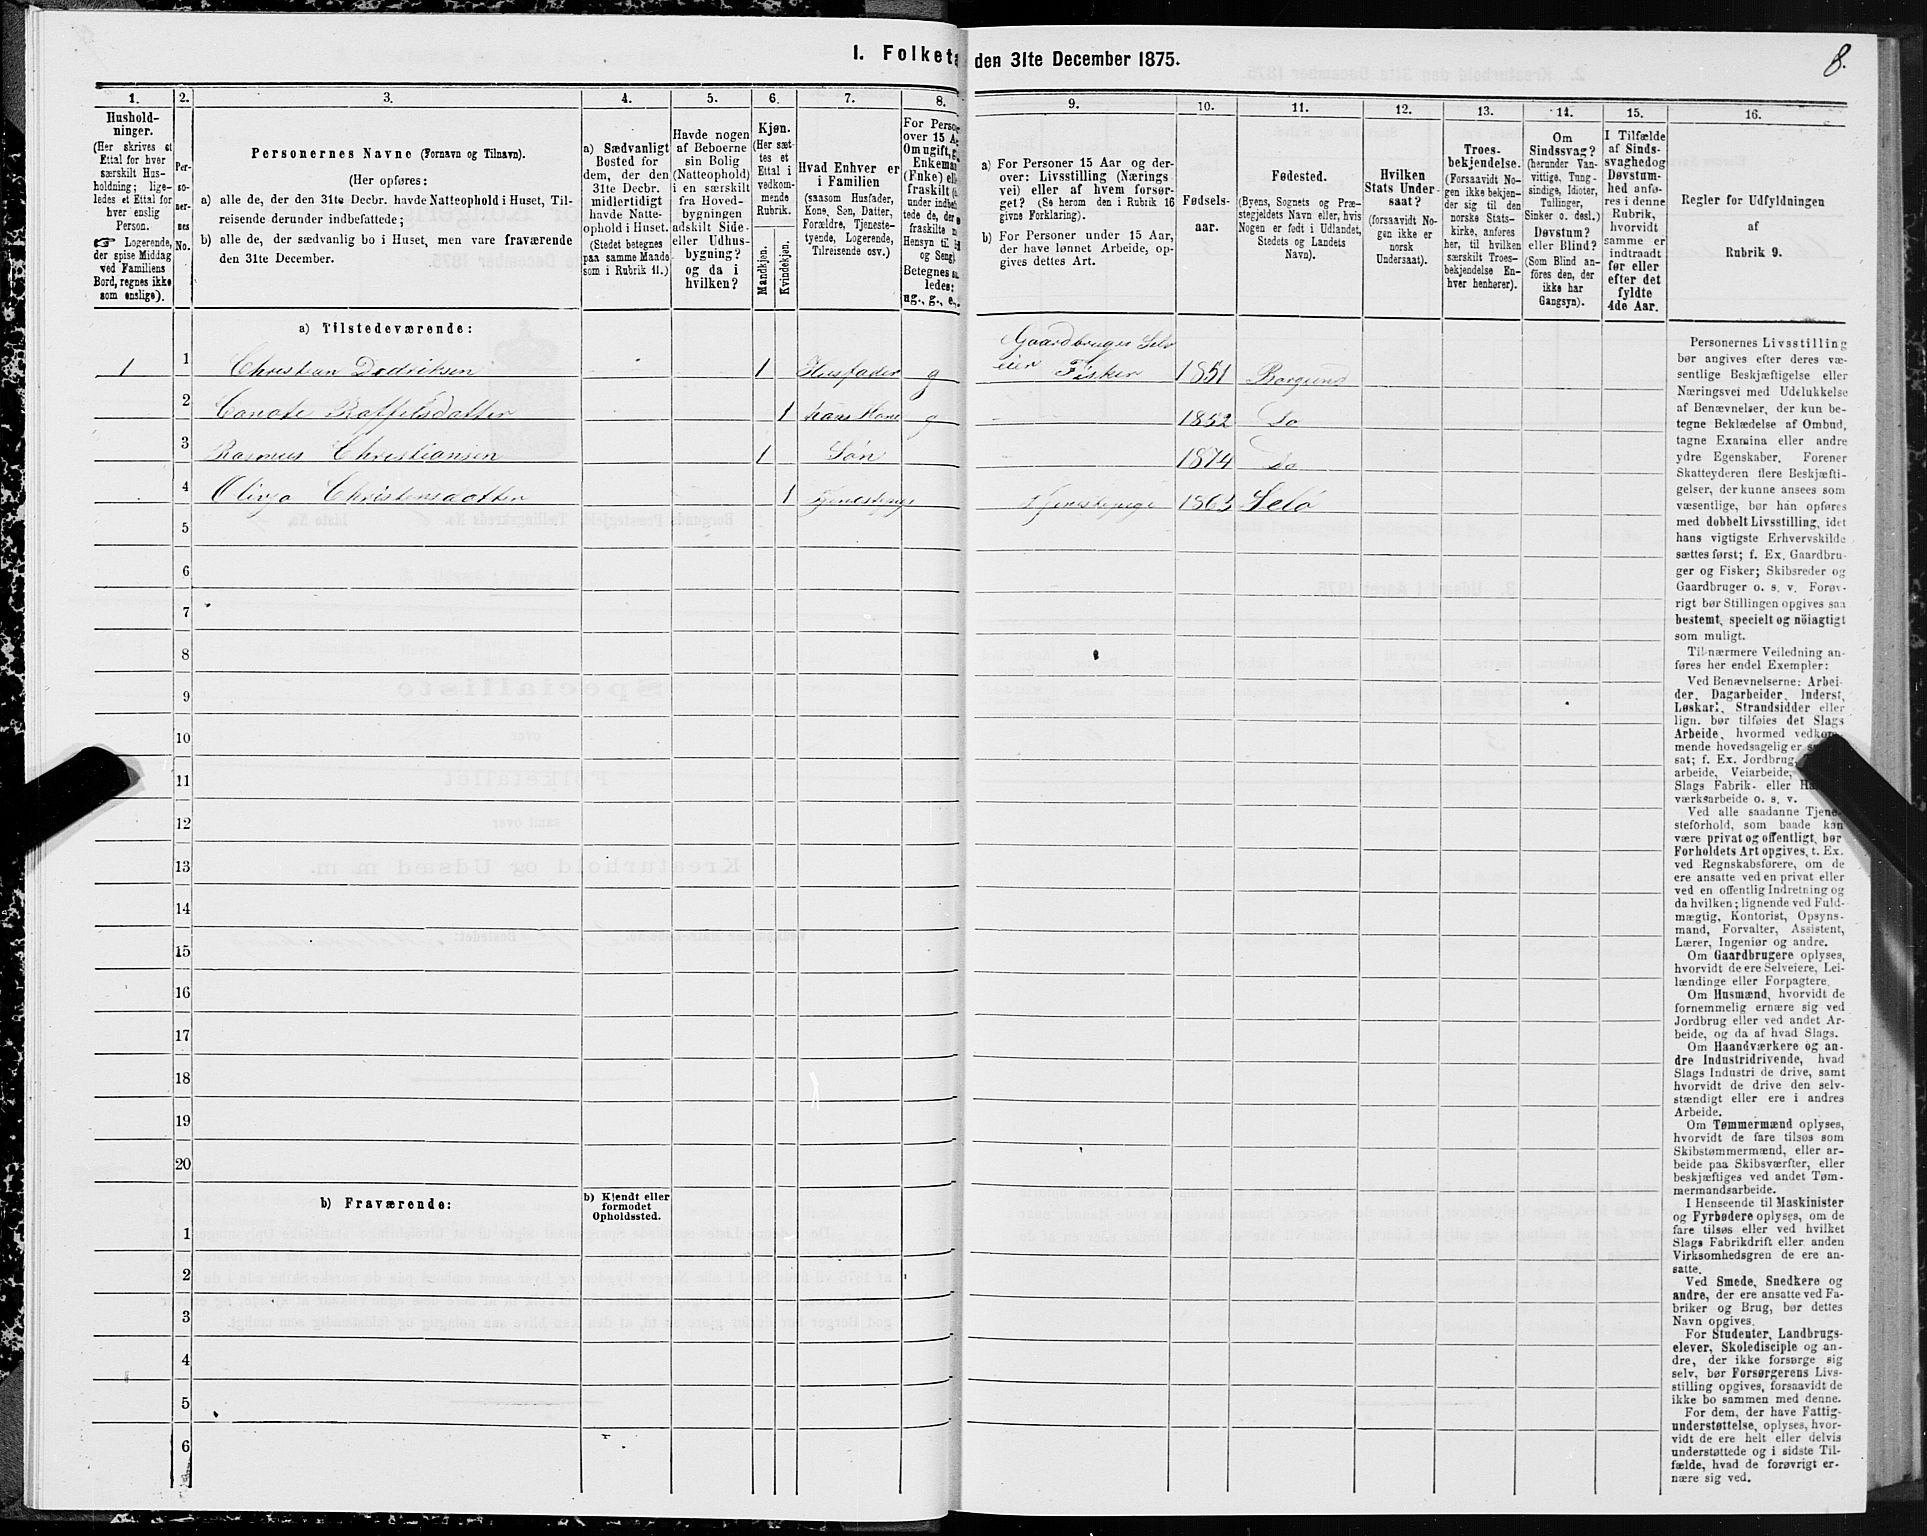 I. Folketæ
den 31te December 1875.
8.
1.
Hushold-
ninger.
(Her skrives et
Ettal for hver
særskilt Hus-
holdning; lige-
ledes et Ettal for
hver enslig
Person.
☞ Logerende,
der spise Middag
ved Familiens
Bord, regnes ikke
som enslige).
2.
Per-
so-
ner-
nes
No.
3.
Personernes Navne (Fornavn og Tilnavn).
(Her opføres:
a) alle de, der den 31te Decbr. havde Natteophold i Huset, Til-
reisende derunder indbefattede;
b) alle de, der sædvanlig bo i Huset, men vare fraværende
den 31te December.
4.
a) Sædvanligt
Bosted for
dem, der den
31te Decbr.
midlertidigt
havde Natte-
ophold i Huset.
(Stedet betegnes
paa samme Maade
som i Rubrik 11.)
5.
Havde nogen
af Beboerne
sin Bolig
(Natteophold)
i en særskilt
fra Hoved-
bygningen
adskilt Side-
eller Udhus-
bygning?
og da i
hvilken?
6.
Kjøn.
(Her sæt-
tes et
Ettal i
vedkom-
mende
Rubrik.
Mandkjøn.
Kvindekjøn.
7.
Hvad Enhver er
i Familien
(saasom Husfader,
Kone, Søn, Datter,
Forældre, Tjeneste-
tyende, Logerende,
Tilreisende osv.)
8.
For Perso
over 15 A
Om ugift, g
Enkema
(Fnke) el
fraskilt (
under indbe
tede de, der
fraskilte
Hensyn til
og Seng)
Betegnes s
ledes:
ug., g., e.,
9.
a) For Personer 15 Aar og der-
over: Livsstilling (Nærings-
vei) eller af hvem forsør-
get? (Se herom den i Rubrik 16
givne Forklaring).
b) For Personer under 15 Aar,
der have lønnet Arbeide, op-
gives dettes Art.
10.
Fødsels-
aar.
11.
Fødested.
(Byens, Sognets og Præ-
stegjeldets Navn eller, hvis
Nogen er født i Udlandet,
Stedets og Landets
Navn).
12.
Hvilken
Stats Under-
saat?
(forsaavidt No-
gen ikke er
norsk
Undersaat).
13.
Troes-
bekjendelse.
(Forsaavidt No-
gen ikke bekjen-
der sig til den
norske Stats-
kirke, anføres
her, til hvilken
særskilt Troes-
bekjendelse En-
hver henhører).
14.
Om
Sindssvag?
(herunder Van-
vittige, Tung-
sindige, Idioter,
Tullinger,
Sinker o. desl.)
Døvstum?
eller Blind?
(Som Blind an-
føres den, der
ikke har
Gangsyn).
15.
I Tilfælde
af Sinds-
svaghedog
Døvstum-
hed anfø-
res i denne
Rubrik,
hvorvidt
samme er
indtraadt
før eller
efter det
fyldte
4de Aar.
16.
Regler for Udfyldningen
af
Rubrik 9.
a) Tilstedeværende:
1 1 Christian Dedriksen 1 Husfader g Gaardbruger Selv
eier Fisker 1851 Borgund
2 Canate Raffelsdatter 1 hans Kone g 1852 Do
3 Rasmus Christiansen 1 Søn 1874 Do
4 Olivja Christensdatter 1 Tjenestepige Tjenestepige 1863 Selø
5
6
7
8
9
10
11
12
13
14
15
16
17
18
19
20
b) Fraværende:
b) Kjendt eller
formodet
Opholdssted.
1
2
3
4
5
6
Personernes Livsstilling
bør angives efter deres væ-
sentlige Beskjæftigelse eller
Næringsvei med Udelukkelse
af Benævnelser, der kun be-
tegne Beklædelse af Ombud,
tagne Examina eller andre
ydre Egenskaber. Forener
Skatteyderen flere Beskjæfti-
gelser, der kunne ansees som
væsentlige, bør han opføres
med dobbelt Livsstilling, idet
hans vigtigste Erhvervskilde
sættes først; f. Ex. Gaardbru-
ger og Fisker; Skibsreder og
Gaardbruger o. s. v. Forøv-
rigt bør Stillingen opgives saa
bestemt, specielt og nöiagtigt
som muligt.
Til nærmere Veiledning an-
føres her endel Exempler:
Ved Benævnelserne: Arbei-
der, Dagarbeider, Inderst,
Løskarl, Strandsidder eller
lign. bør tilføies det Slags
Arbeide, hvormed vedkom-
mende hovedsagelig er
sat; f. Ex. Jordbrug,
arbeide, Veiarbeide,
Slags Fabrik- eller
værksarbeide o. s. v.
Ved alle saadanne Tjene-
steforhold, som baade kan
være privat og offentligt, bør
Forholdets Art opgives, t. Ex.
ved Regnskabsførere, om de
ere ansatte ved en privat eller
ved en offentlig Indretning og
da hvilken; lignende ved Fuld-
mægtig, Kontorist, Opsyns-
mand, Forvalter, Assistent,
Lærer, Ingeniør og andre.
Om Gaardbrugere oplyses,
hvorvidt de ere Selveiere, Lei-
lændinge eller Forpagtere.
Om Husmænd, hvorvidt de
fornemmelig ernære sig ved
Jordbrug eller ved andet Ar-
beide, og da af hvad Slags.
Om Haandværkere og an-
dre Industridrivende, hvad
Slags Industri de drive, samt
hvorvidt de drive den selv-
stændigt eller ere i andres
Arbeide.
Om Tømmermænd oplyses,
hvorvidt de fare tilsøs som
Skibstømmermænd, eller ar-
beide paa Skibsværfter, eller
beskjæftiges ved andet Tøm-
mermandsarbeide.
I Henseende til Maskinister
og Fyrbødere oplyses, om de
fare tilsøs eller ved hvilket
Slags Fabrikdrift eller anden
Virksomhedsgren de ere an-
satte.
Ved Smede, Snedkere og
andre, der ere ansatte ved Fa-
briker og Brug, bør dettes
Navn opgives.
For Studenter, Landbrugs-
elever, Skoledisciple og an-
dre, der ikke forsørge sig
selv, bør Forsørgerens Livs-
stilling opgives, forsaavidt de
ikke bo sammen med denne.
For dem, der have Fattig-
understøttelse, oplyses, hvor-
vidt de ere helt eller delvis
understøttede og i sidste Til-
fælde, hvad de forøvrigt er-
nære sig ved.